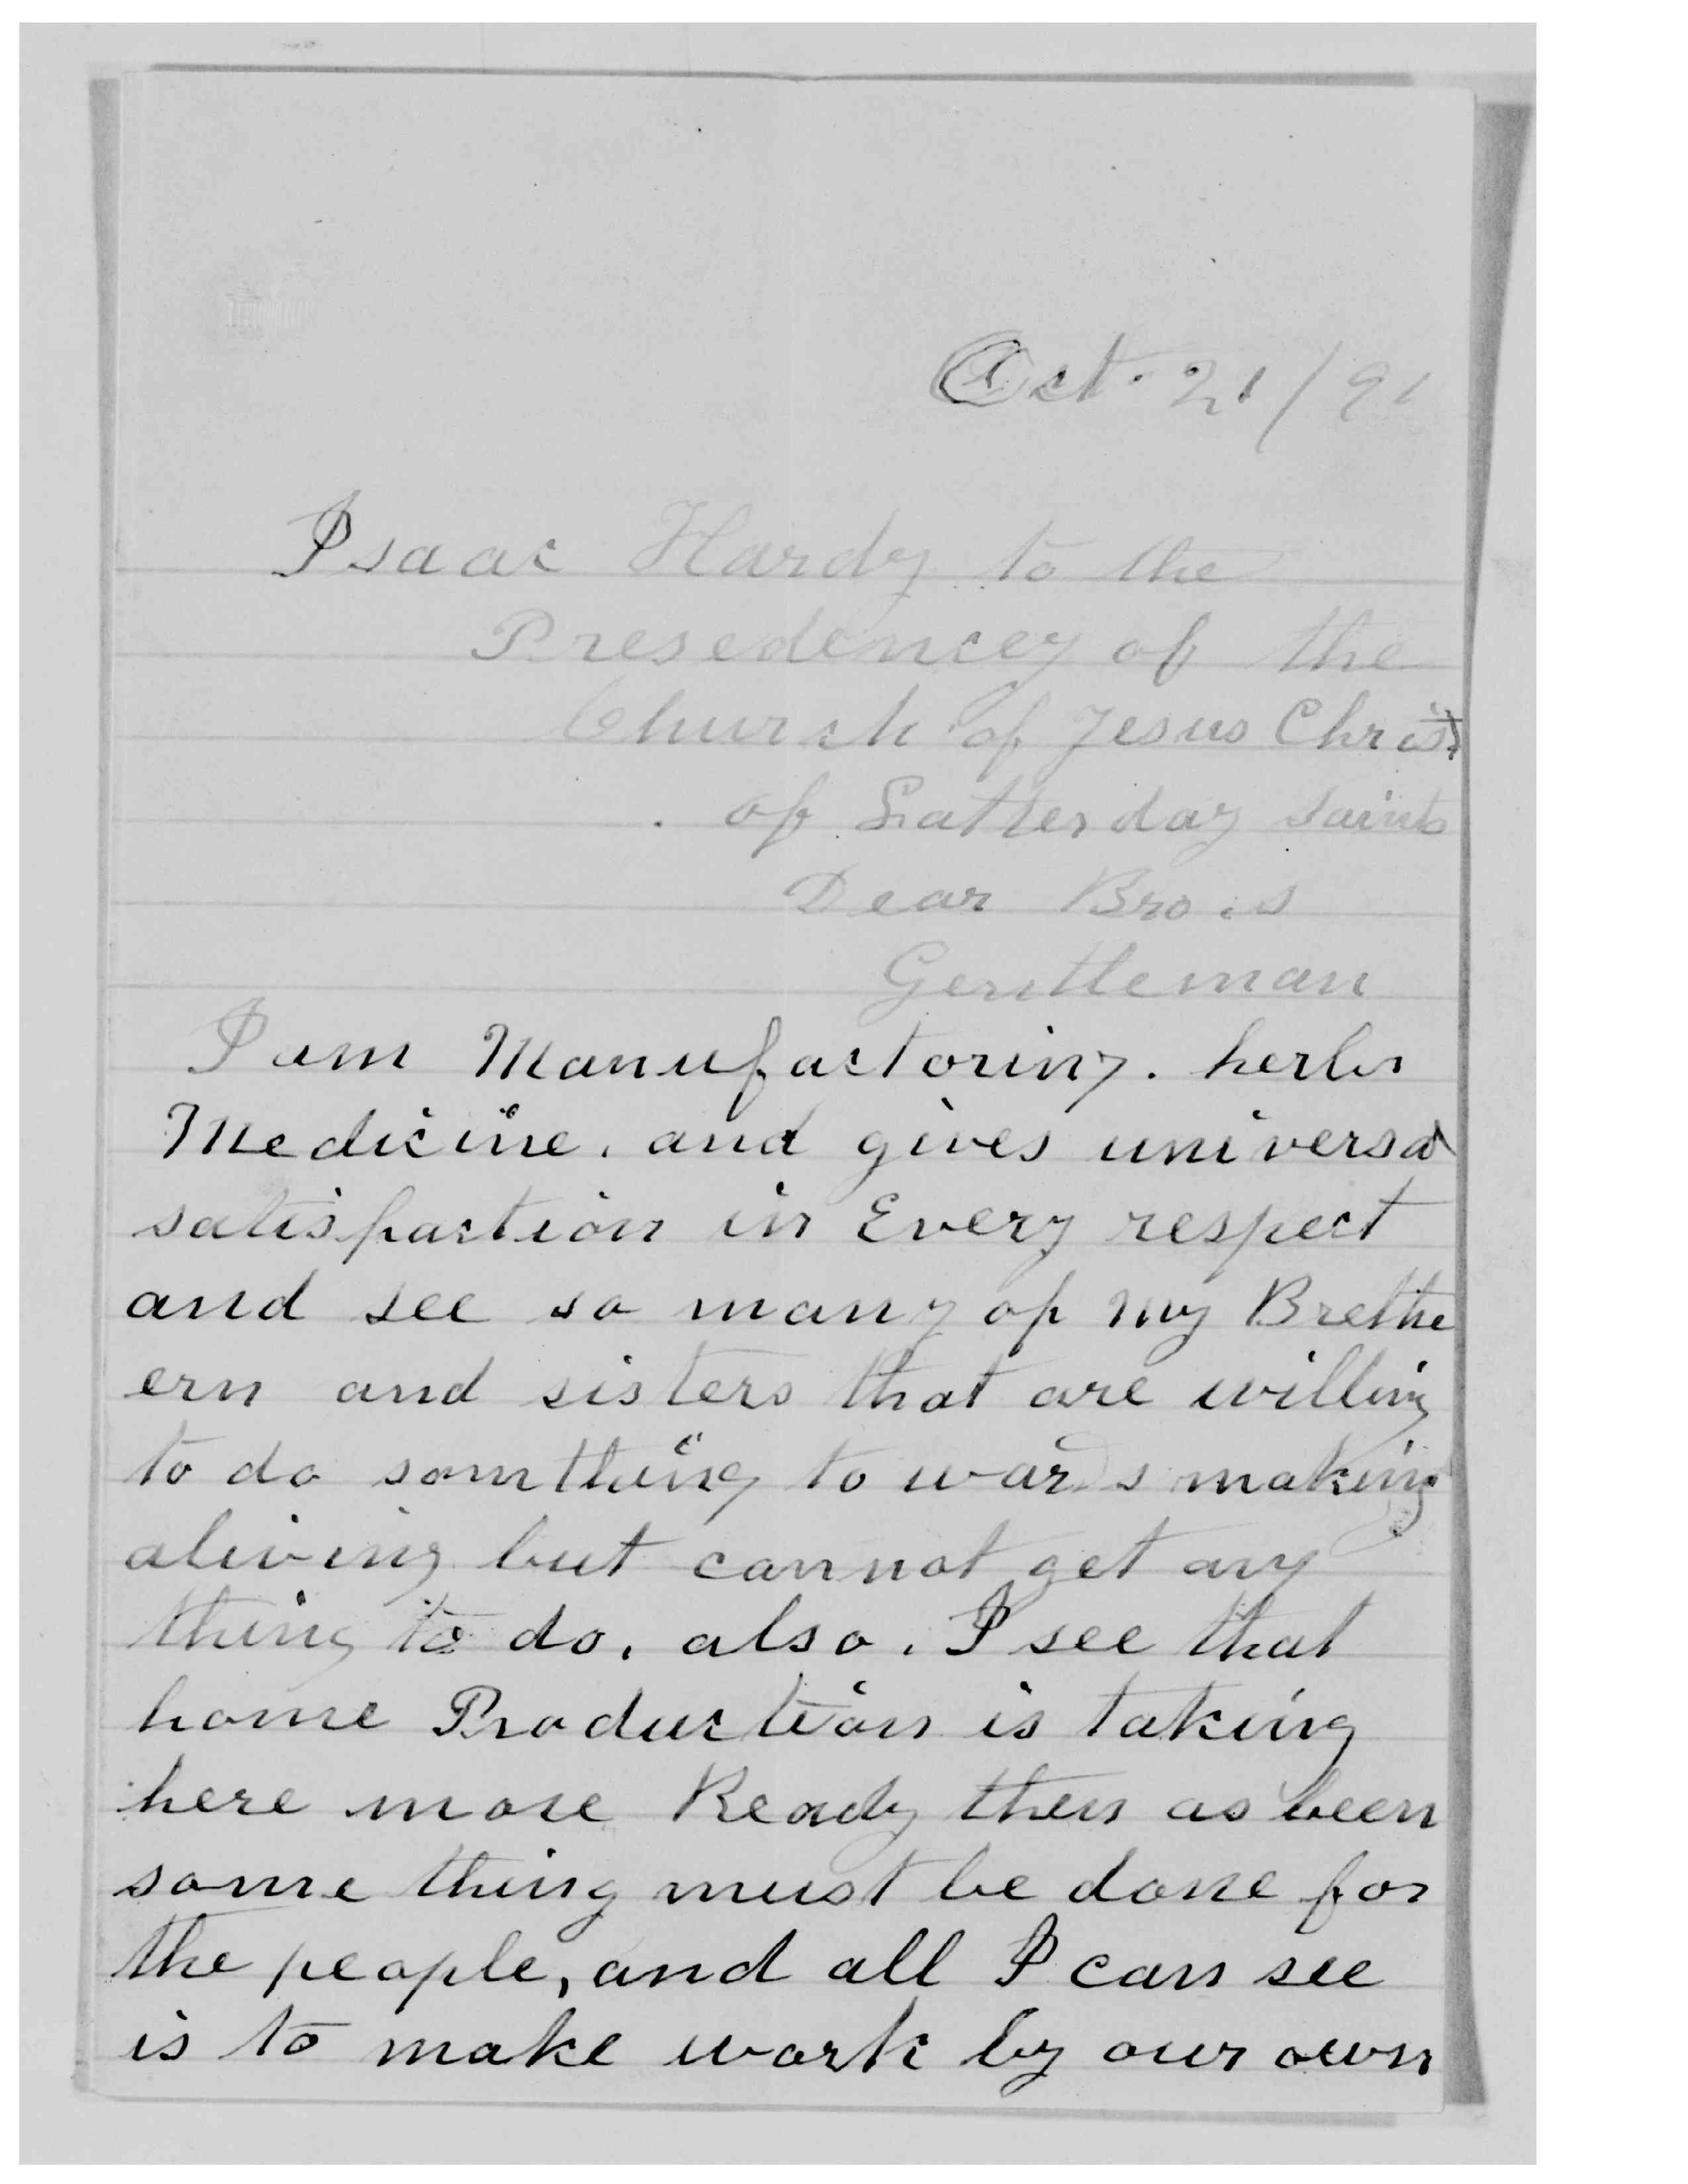 Oct. 21/91
Isaac Hardy to the
Presedencey of the
Church of Jesus Christ
of Latterday saints
Dear Bro.s
Gentleman
I am Manufactoring. herbs
Medicine. and gives universal
satisfaction in Every respect
and see so many of my Brethe
ern and sisters that are willing
to do somthing to wards making
aliving but cannot get any
thing to do. also. I see that
home Production is taking
here more Ready then as been
some thing must be done for
the people, and all I can see
is to make work by our own